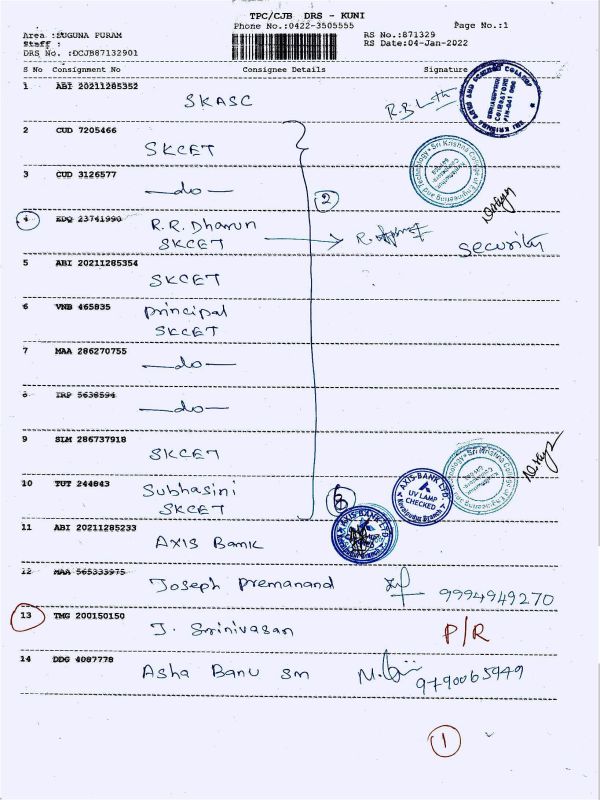 TPC/CJB DRS - KUNI
Phone No.:0422-3505555
Page No.:1
Area :SUGUNA PURAM
Staff :
DRS No. :DCJB87132901
RS No.:871329
RS Date:04-Jan-2022
S No Consignment No Consignee Details Signature
1 ABI 20211285352 SKASC
2 CUD 7205466 SKCET
3 CUD 3126577 —do—
2
4 EDQ 23741990 R.R. Dharun
SKCET
security
5 ABI 20211285354 SKCET
6 VNB 465835 principal
SKCET
7 MAA 286270755 —do—
8 IRP 5638594 —do—
9 SLM 286737918 SKCET
10 TUT 244843 Subhasini
SKCET
AXIS-BANK LTD
UV LAMP
CHECKED
11 ABI 20211285233 AXIS Bank
12 MAA 565333975 Joseph Premanand 9994949270
13 TMG 200150150 J. Srinivasan P/R
14 DDG 4087778 Asha Banu sm 9790065949
1